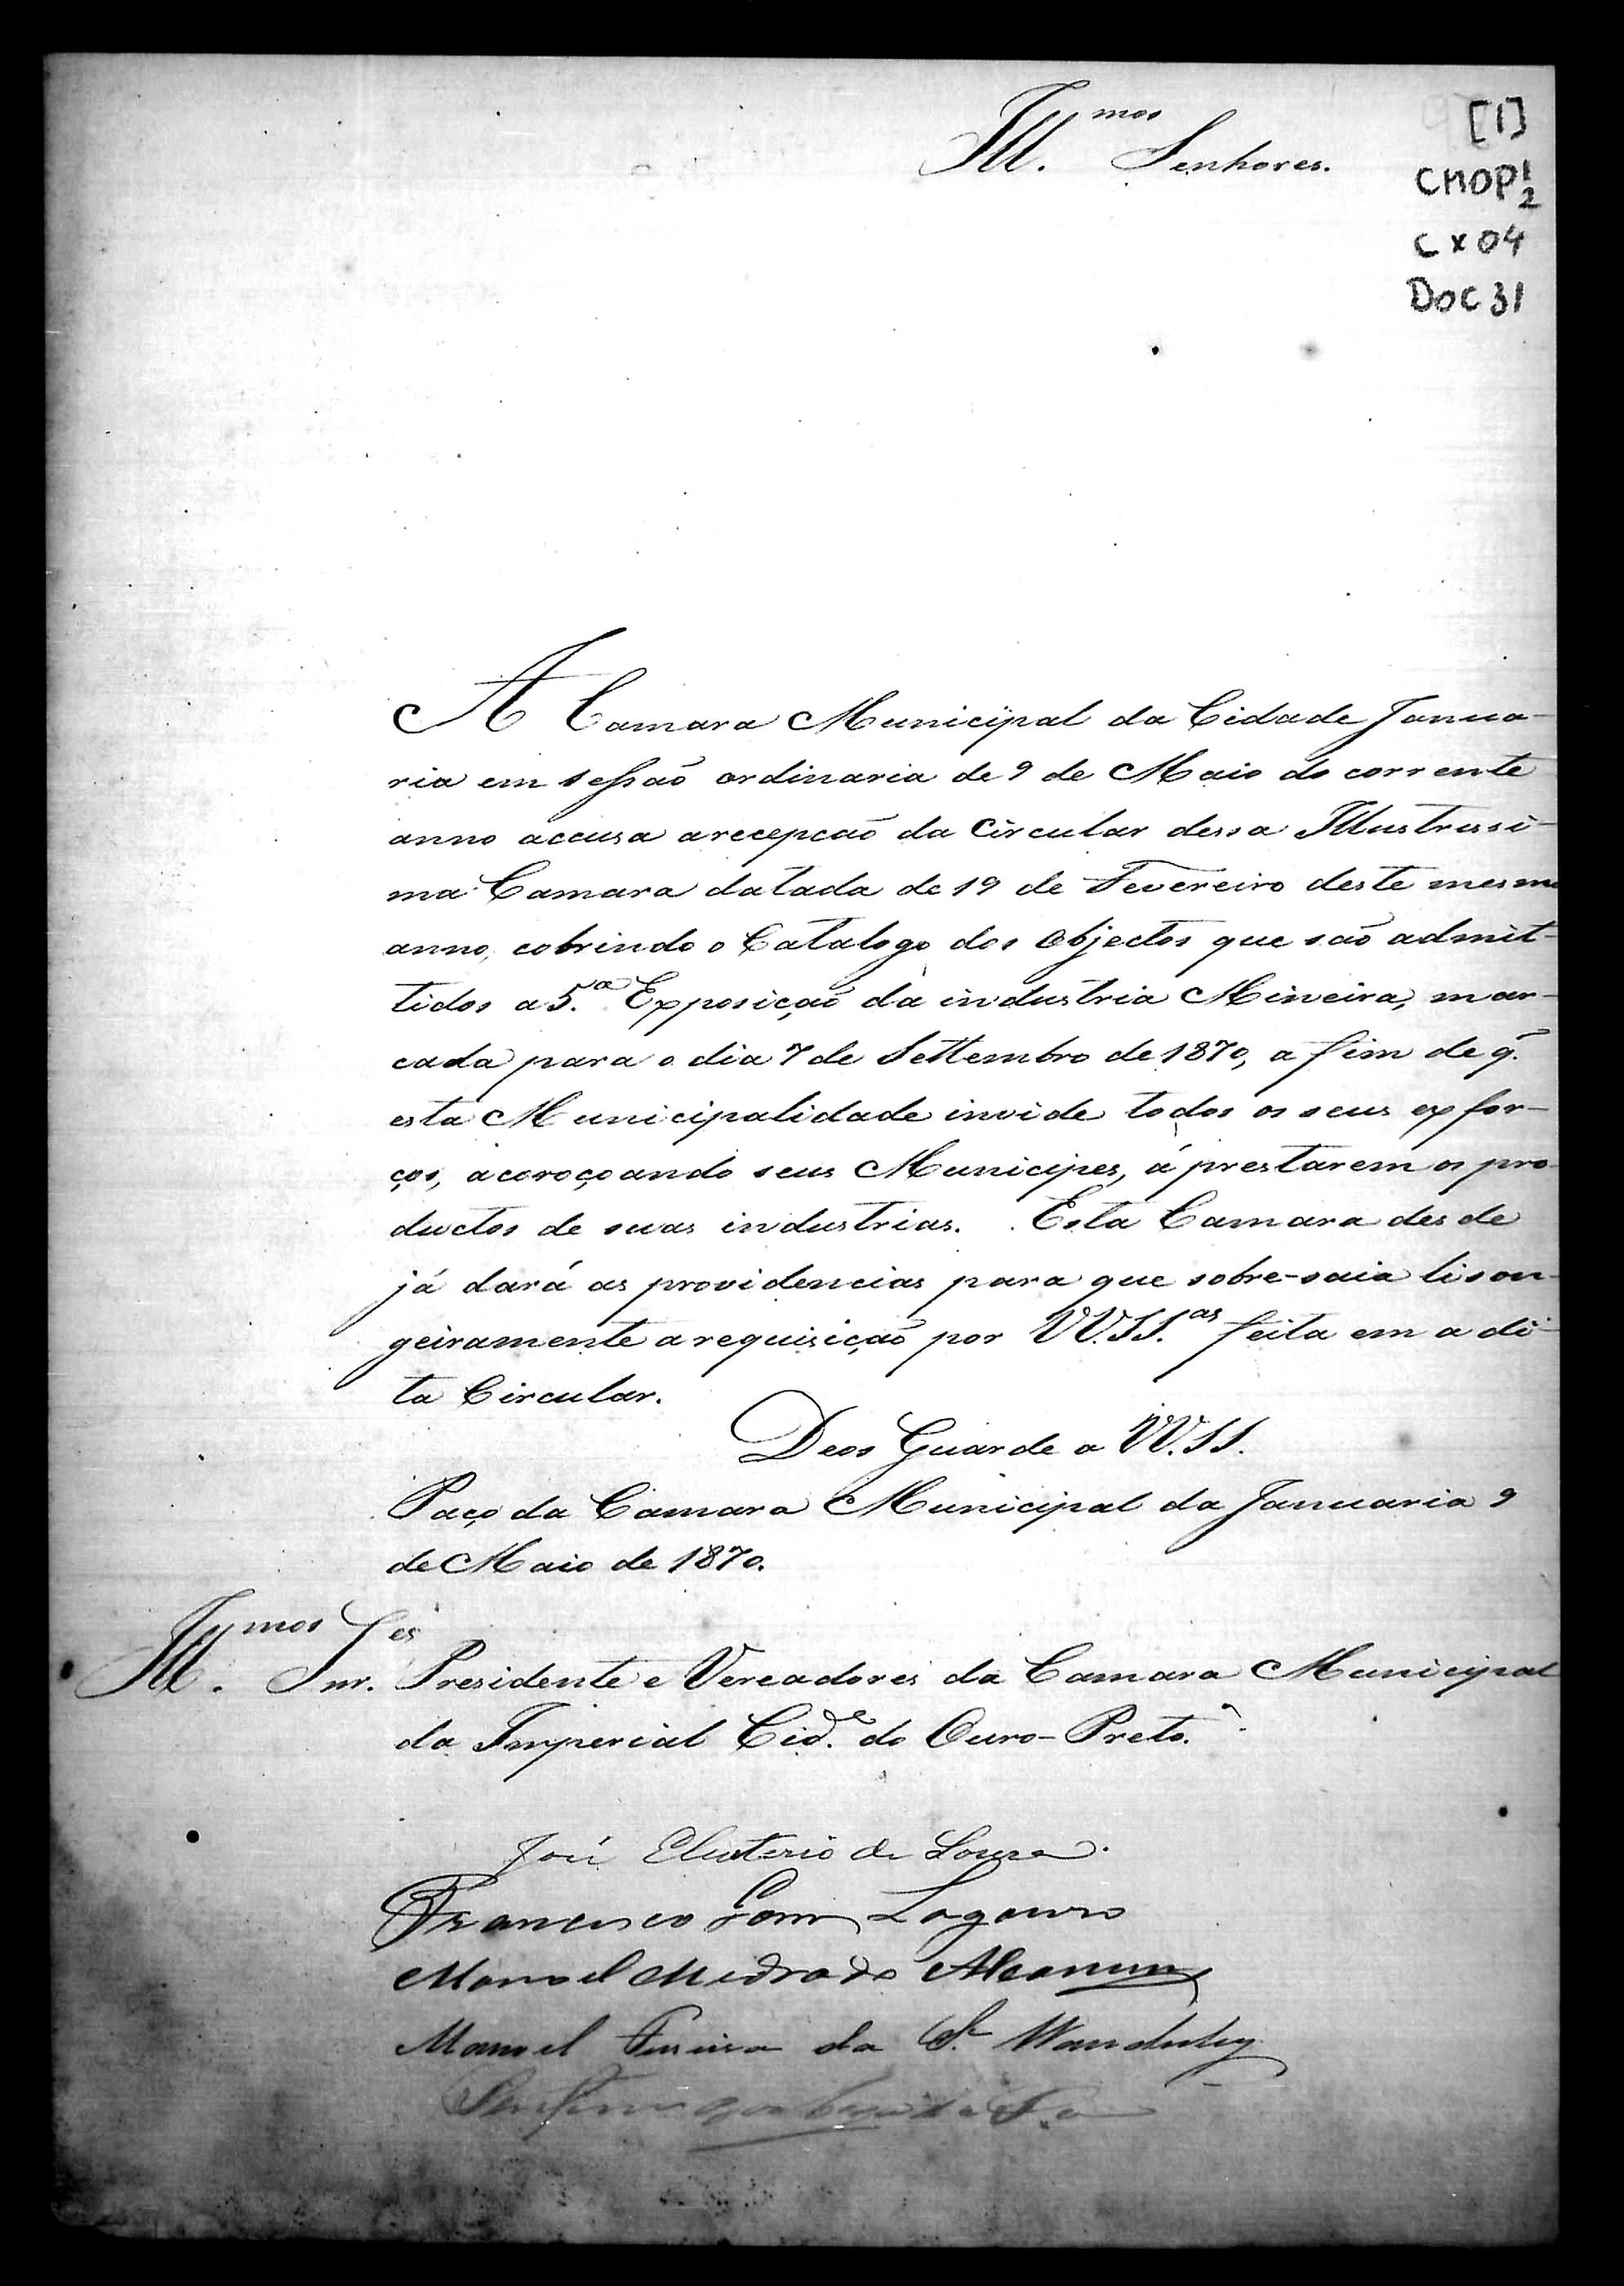 Ill.mos Senhores.
[1]
CMOP 1/2
Cx 04
DOC 31
A Camara Municipal da Cidade Janua-
ria em sessaõ ordinaria de 9 de Maio do corrente
anno accusa arecepcaõ da Circular dessa Illustrissi-
ma Camara datada de 19 de Fevereiro deste mesmo
anno, cobrindo o Catalogo dos Objectos que saõ admit-
tidos a 5.a Exposiçaõ da industria Mineira, mar-
cada para o dia 7 de Settembro de 1870, a fim de q̃.
esta Municipalidade invide todos os seus exfor-
ços, acoroçoando seus Municipes, á prestarem os pro-
ductos de suas industrias. Esta Camara desde
já dará as providencias para que sobre-saia lison-
geiramente a requisiçaõ por VV.SS.as feita em a di-
ta Circular.
Deos Guarde a VV.SS.
Paço da Camara Municipal da Januaria 9
de Maio de 1870.
Ill.mos Snr.es Presidente e Vereadores da Camara Municipal
da Imperial Cid.e do Ouro-Preto.
José Eleuterio de Sousa.
Francisco Lagoeiro
Manoel Medrado
Manoel Ferreira da S.a Wanderley